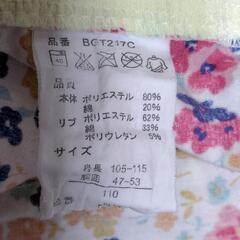 品番 BGT217C
40
品質
本体 ポリエステル 80%
綿 20%
リブ ポリエステル 62%
綿 33%
ポリウレタン 5%
サイズ
身長 105-115
胸囲 47-53
110